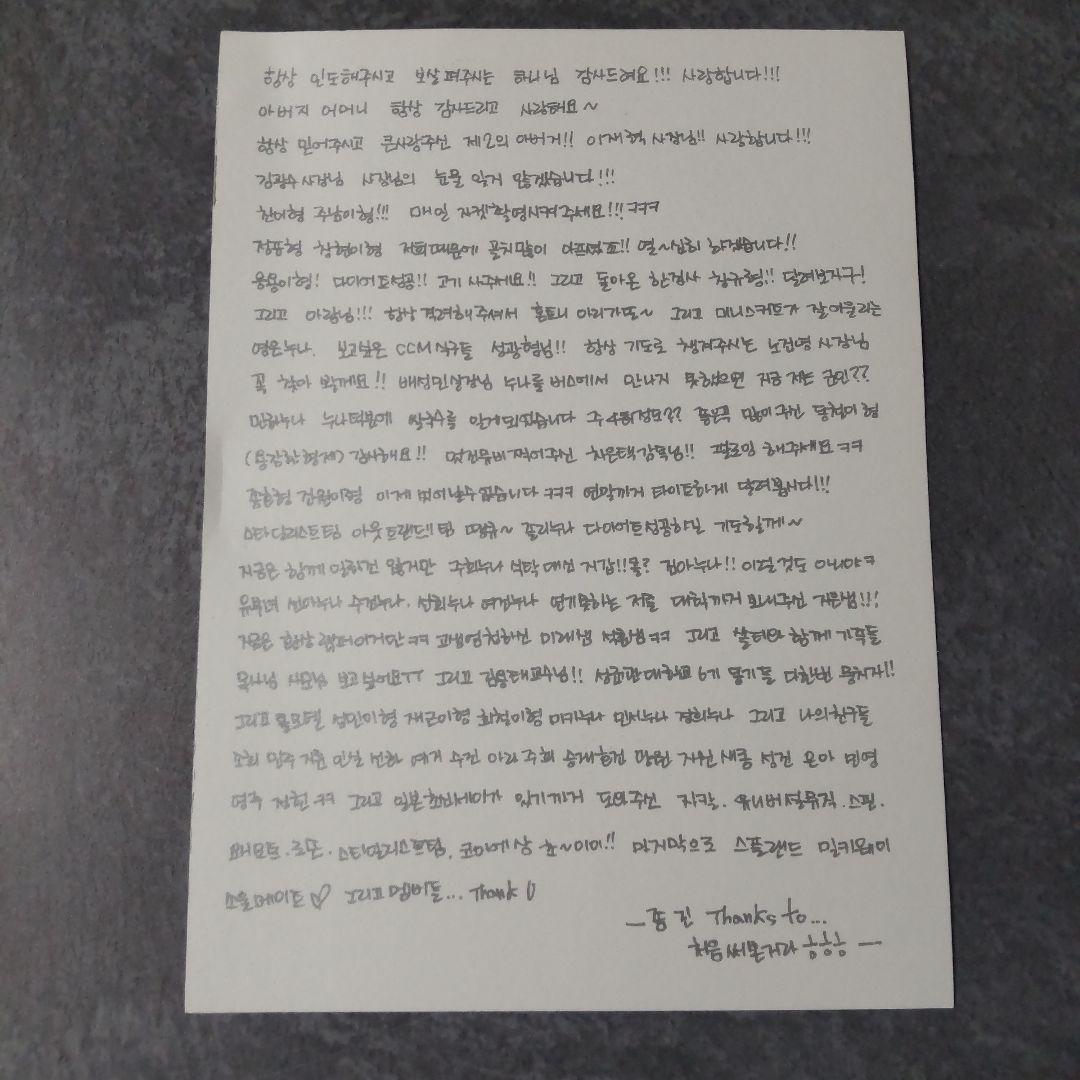 항상 인도해주시고 보살펴주시는 하나님 감사드려요!!! 사랑합니다!!!
아버지 어머니 항상 감사드리고 사랑해요~
항상 믿어주시고 큰사랑주신 제2의 아버지!! 이재혁 사장님!! 사랑합니다!!!
김광수사장님 사장님의 눈물 잊지 않겠습니다!!!
찬이형 주남이형!!! 매일 자켓촬영시켜주세요!!! ㅋㅋㅋ
장풍형 창현이형 저희때문에 골치많이 아프셨죠!! 열~심히 하겠습니다!!
용용이형! 다이어트성공!! 고기 사주세요!! 그리고 돌아온 한검사 창규형!! 달려보자구!
그리고 아람님!!! 항상 격려해주셔서 혼토니 아리가또~ 그리고 미니스커트가 잘어울리는
영은누나. 보고싶은 CCM식구들 성광형님!! 항상 기도로 챙겨주시는 노건영 사장님
꼭 찾아 뵐께요!! 배성민실장님 누나를 버스에서 만나지 못했으면 지금 저는 군인??
민하누나 누나덕분에 쌀국수를 알게되었습니다 주4회정도?? 좋은곡 많이주신 동철이형
(용감한형제) 감사해요!! 멋진뮤비찍어주신 차은택감독님!! 팔로잉 해주세요ㅋㅋ
종효형 건원이형 이제 벗어날수없습니다 ㅋㅋㅋ 연말까지 타이트하게 달려봅시다!!!
스타일리스트팀 아웃트랜드!!팀 땡큐~ 졸리누나 다이어트성공하길 기도할께~
지금은 함께 일하진 않지만 주희누나 식탁대신 지갑!!콜? 진아누나!! 이럴것도 아니야ㅋ
유부녀 선아누나 수진누나. 상희누나 여진누나 연기못하는 저를 대학까지 보내주신 지은샘!!!
지금은 항상 랩퍼이지만ㅋㅋ 고생엄청하신 미래샘 석훈샘ㅋㅋ 그리고 쉴터와 함께 가족들
목사님 사모님 보고싶어요ㅜㅜ 그리고 김용태교수님!! 성균관대학교 6기 동기들 다한번 뭉치자!!
그리고 성민이형 재근이형 희철이형 미키누나 민서누나 경희누나 그리고 나의친구들
소희 민주 지훈 민실 선화 예지 수진 아리 주희 승재 망원 자원 새롬 성진 은아 민영
명주 장현ㅋㅋ 그리고 일본 있기까지 도와주신 자칼. 유니버설뮤직. 스핀.
로온. 스타일리스트팀. 코이에상 쵸~이이!! 마지막으로 스플랜드 밀키웨이
소울메이트♡ 그리고멤버들... Thank U
— 종진 Thanks to...
처음써본거라 ㅎㅎㅎ —